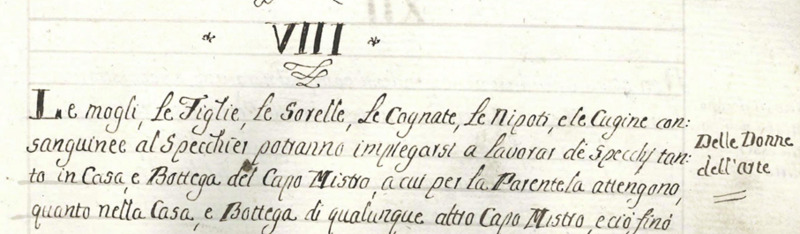 VIII
Le mogli, le Figlie, le Sorelle, le Cognate, le Nipoti, e le Cugine con:
sanguinee al Specchier potranno impiegarsi a lavorar de Specchj tan:
to in Casa, e Bottega del Capo Mistro, a cui per la Parentela attengono,
quanto nella Casa, e Bottega di qualunque altro Capo Mistro, e ciò fino
Delle Donne
dell'arte